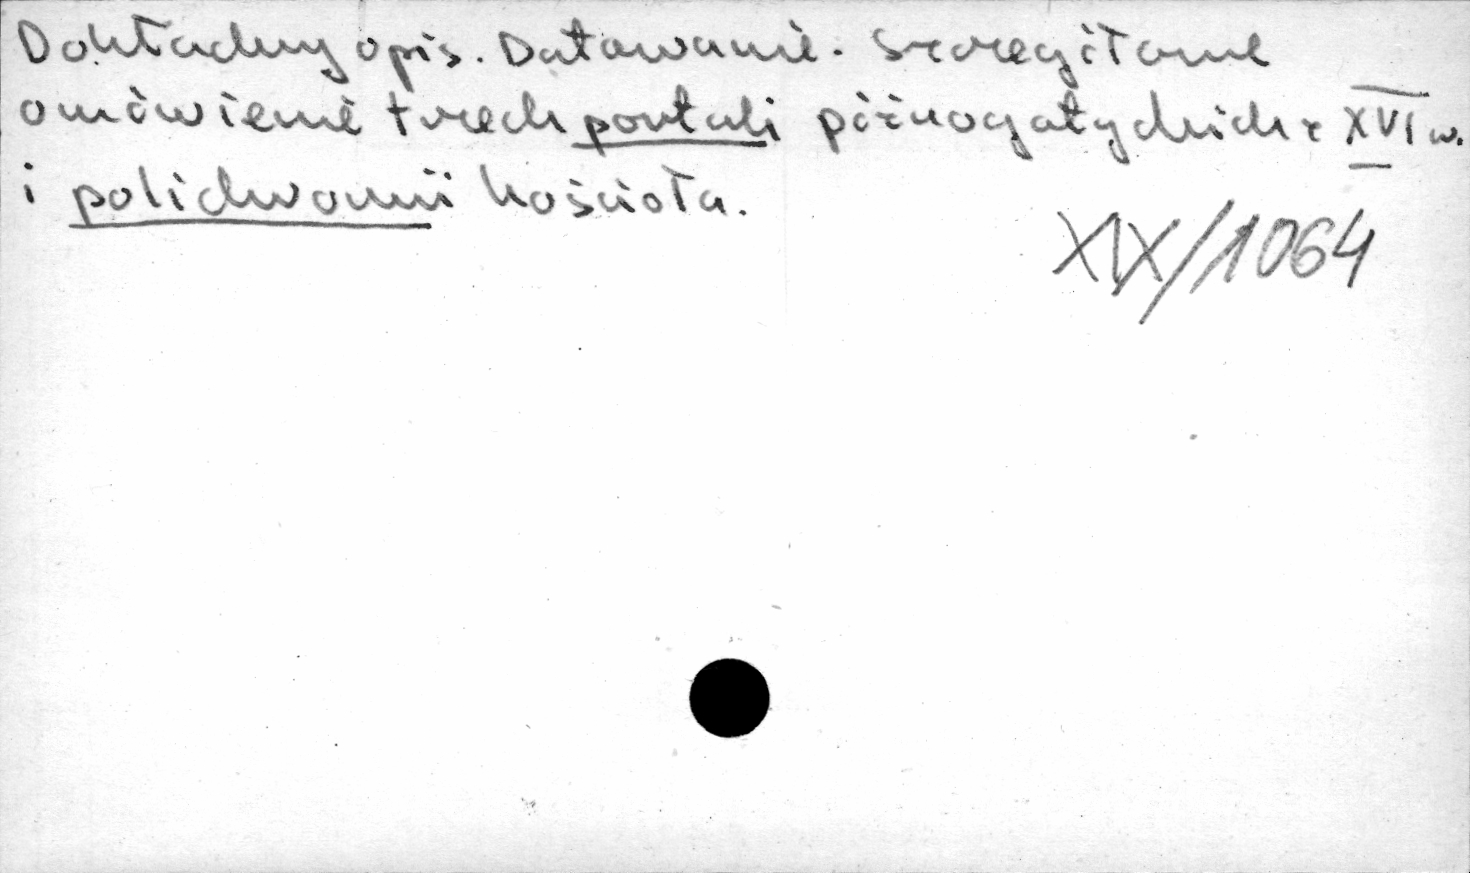 Dokładny opis. Datowanie. Szczegółowe
omówienie trzech portali późnogotyckich z XVI w.
i polichromii kościoła.
XIX/1064